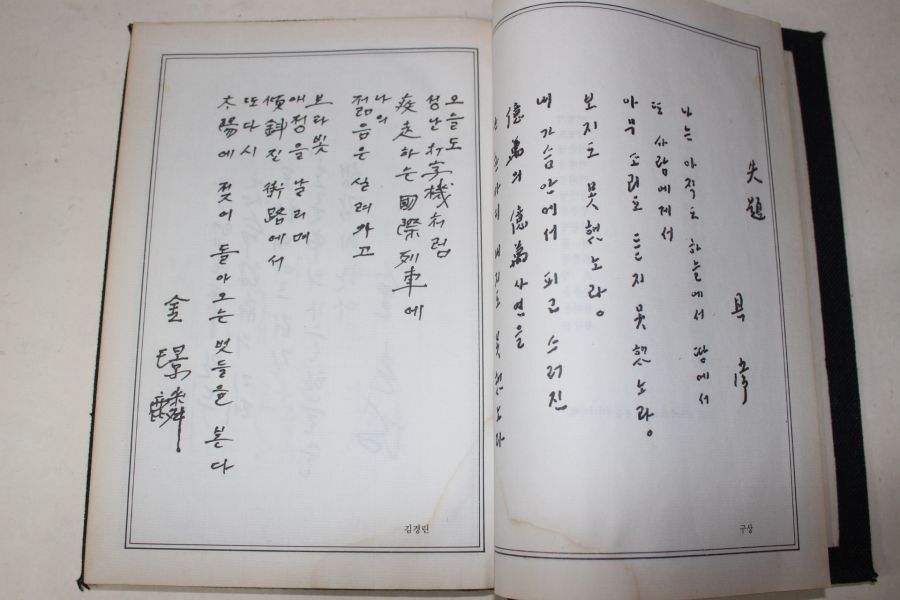 失題 具常
나는 아직도 하늘에서 땅에서
또 사람에게서
아무 소리도 듣지 못했노라。
보지도 못했노라。
내 가슴안에서 피고 스러진
億萬의 億萬 사연을
못했노라
구상
오늘도
성난 打字機처럼
疾走하는 國際列車에
나의
젊음은 실려가고
보라빛
애정을 날리며
傾斜진 街路에서
또다시
太陽에 젖어 돌아오는 벗들을 본다
金璟麟
김경린